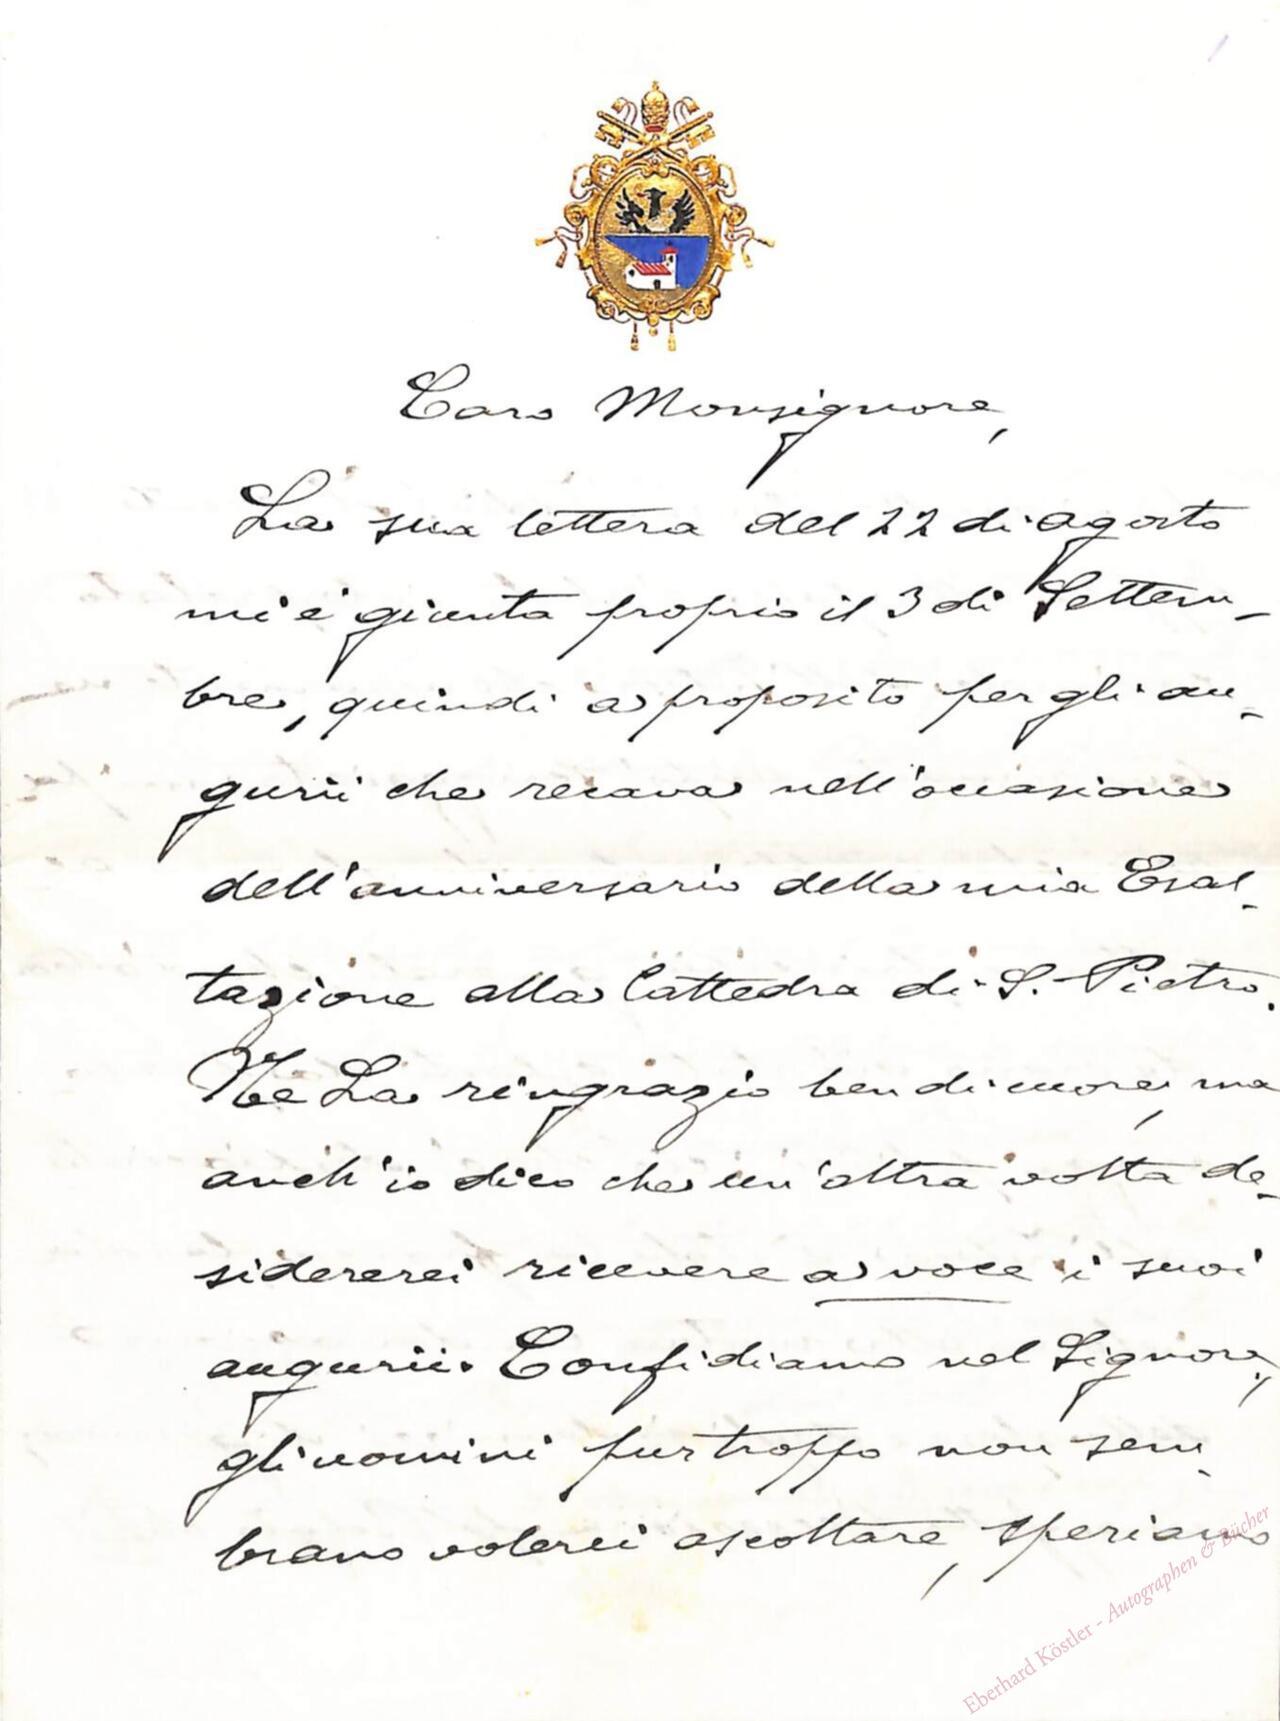 Caro Monsignore,
La sua lettera del 22 di agosto
mi è giunta proprio il 3 di Settem-
bre, quindi a proposito per gli au-
gurii che recava nell'occasione
dell'anniversario della mia Esal-
tazione alla Cattedra di S. Pietro.
Ne La ringrazio ben di cuore, ma
anch'io dico che un'altra volta de-
sidererei ricevere a voce i suoi
augurii. Confidiamo nel Signore,
gli uomini purtroppo non sem-
brano volerci ascoltare, speriamo
Eberhard Köstler - Autographen & Bücher